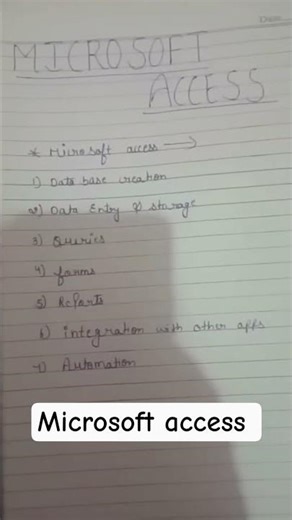 Date
MICROSOFT
ACCESS
* Microsoft access →
1) Data base creation
2) Data Entry & storage
3) Queries
4) forms
5) Reports
6) integration with other apps
7) Automation
Microsoft access